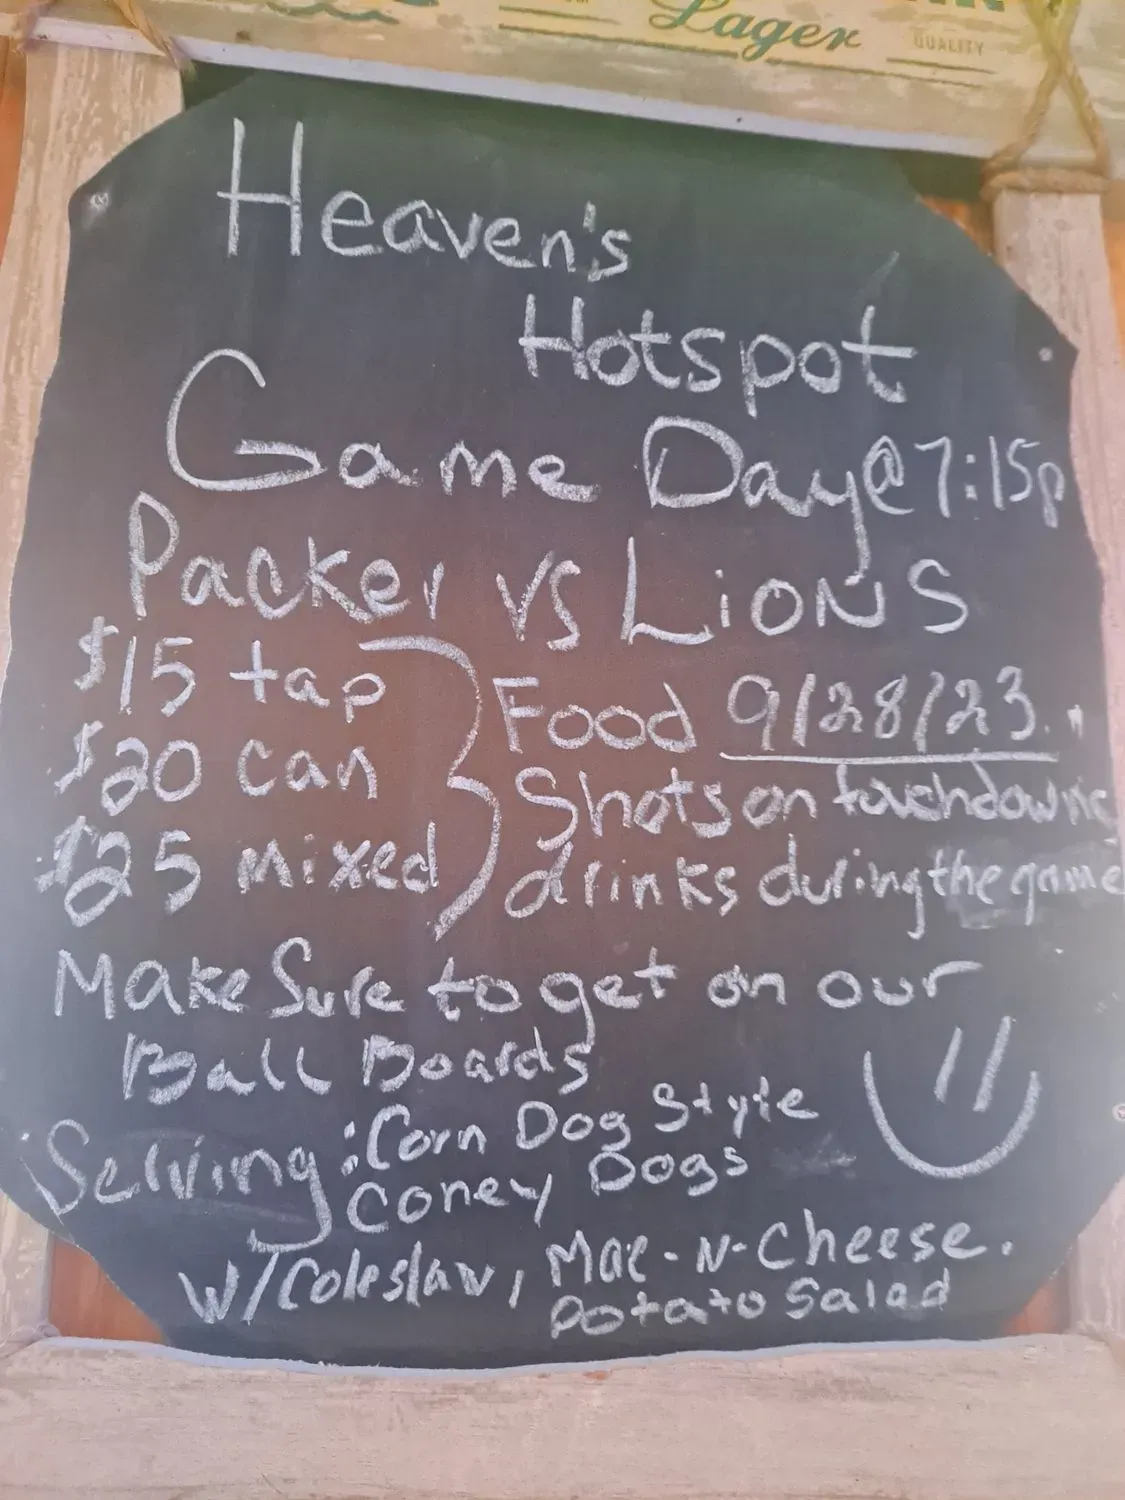 Lager
QUALITY
Heaven's
Hotspot
Game Day@7:15p
Packer vs Lions
$15 tap
$20 can
$25 mixed
Food 9/28/23.
Shots on touchdowns
drinks during the game
Make Sure to get on our
Ball Boards
Serving: Corn Dog Style
Coney Dogs
W/Coleslaw, Mac-N-Cheese.
Potato Salad